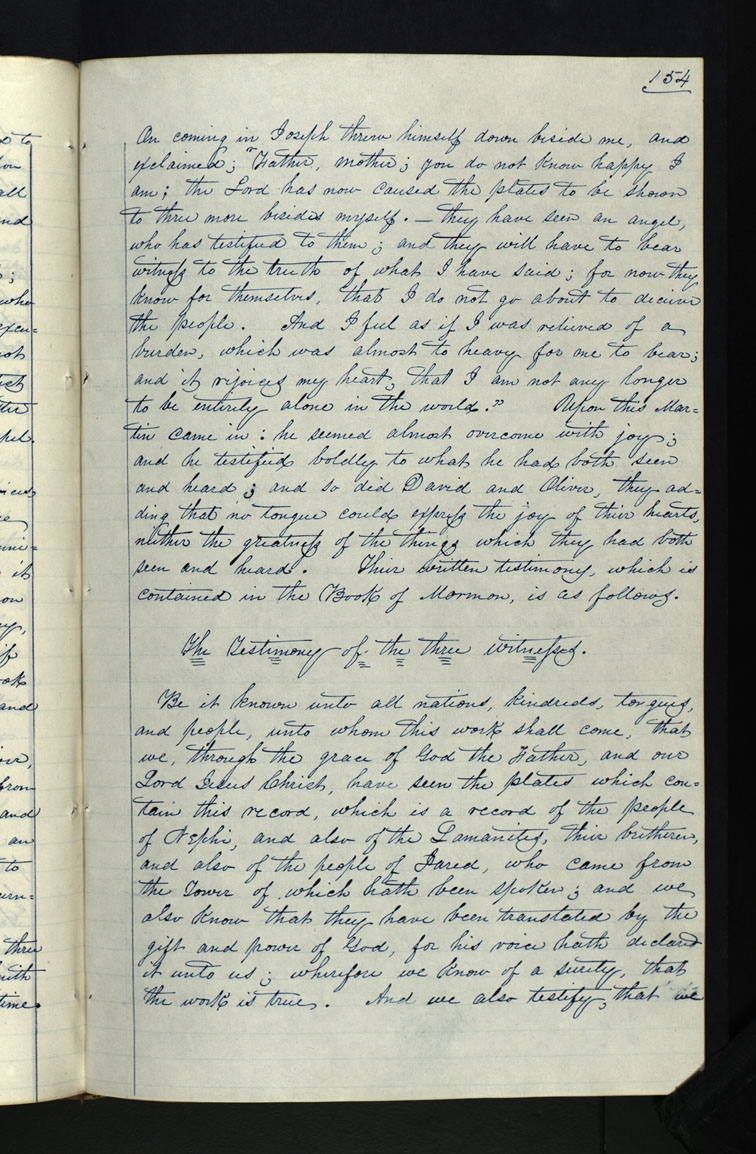 154
On coming in Joseph threw himself down beside me, and
exclaimed; "Father, mother; you do not know happy I
am; the Lord has now caused the plates to be shown
to three more besides myself. — they have seen an angel,
who has testified to them; and they will have to bear
witness to the truth of what I have said; for now they
know for themselves, that I do not go about to deceive
the people. And I feel as if I was relieved of a
burden, which was almost to heavy for me to bear;
and it rejoices my heart, that I am not any longer
to be entirely alone in the world." Upon this Mar=
tin came in: he seemed almost overcome with joy;
and he testified boldly to what he had both seen
and heard; and so did David and Oliver, they ad=
ding that no tongue could express the joy of their hearts,
neither the greatness of the things which they had both
seen and heard. Their written testimony, which is
contained in the Book of Mormon, is as follows.
The Testimony of the three witnesses.
Be it known unto all nations, kindreds, tongues,
and people, unto whom this work shall come, that
we, through the grace of God the Father, and our
Lord Jesus Christ, have seen the plates which con=
tain this record, which is a record of the people
of Nephi, and also of the Lamanites, their bretheren,
and also of the people of Jared, who came from
the Tower of which hath been spoken; and we
also know that they have been translated by the
gift and power of God, for his voice hath declared
it unto us; wherefore we know of a surety, that
the work is true. And we also testify, that we